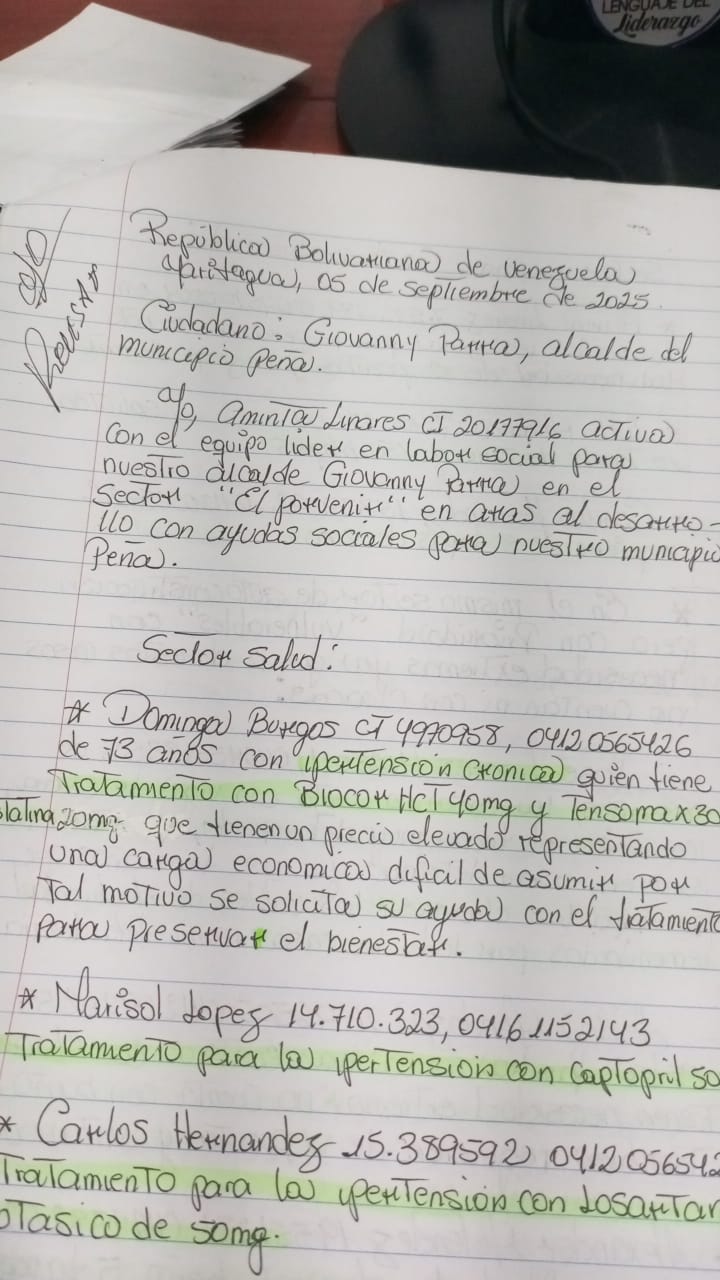 LENGUAJE DEL
Liderazgo
República Bolivariana de venezuela
Yaritagua, 05 de septiembre de 2025.
Ciudadano: Giovanny Parra, alcalde del
municipio peña.
Aminta Linares CI 20177916 activa
con el equipo lider en labor social para
nuestro alcalde Giovanny Parra en el
Sector "El porvenir" en aras al desarro-
llo con ayudas sociales para nuestro municipio
Peña.
Sector salud:
* Dominga Burgos CI 4970958, 04120565426
de 73 años con ipertensión cronica quien tiene
Tratamiento con Biocor HCT 40mg y Tensomax 30
20mg. que tienen un precio elevado representando
una carga economica dificil de asumir por
Tal motivo se solicita su ayuda con el tratamiento
para preservar el bienestar.
* Marisol Lopez 14.710.323, 04161152143
Tratamiento para la ipertensión con captopril 50
* Carlos Hernandez 15.389592 0412056542
Tratamiento para la ipertensión con Losartan
otasico de 50mg.